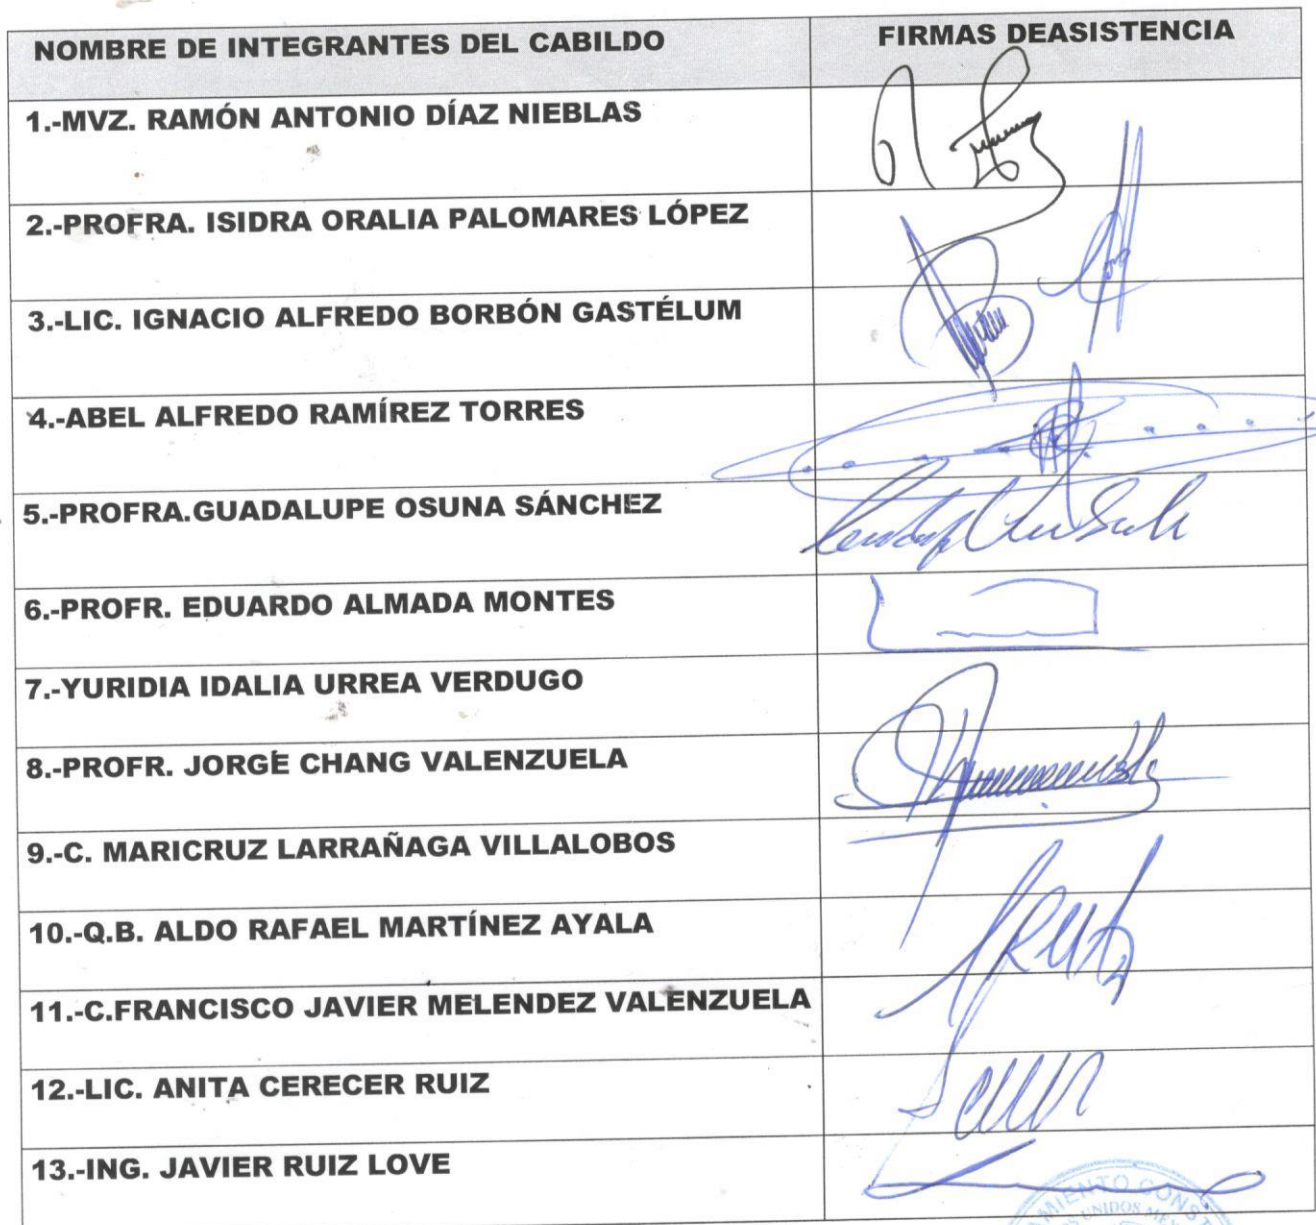 NOMBRE DE INTEGRANTES DEL CABILDO
FIRMAS DEASISTENCIA
1.-MVZ. RAMÓN ANTONIO DÍAZ NIEBLAS
2.-PROFRA. ISIDRA ORALIA PALOMARES LÓPEZ
3.-LIC. IGNACIO ALFREDO BORBÓN GASTÉLUM
4.-ABEL ALFREDO RAMÍREZ TORRES
5.-PROFRA.GUADALUPE OSUNA SÁNCHEZ
6.-PROFR. EDUARDO ALMADA MONTES
7.-YURIDIA IDALIA URREA VERDUGO
8.-PROFR. JORGE CHANG VALENZUELA
9.-C. MARICRUZ LARRAÑAGA VILLALOBOS
10.-Q.B. ALDO RAFAEL MARTÍNEZ AYALA
11.-C.FRANCISCO JAVIER MELENDEZ VALENZUELA
12.-LIC. ANITA CERECER RUIZ
13.-ING. JAVIER RUIZ LOVE